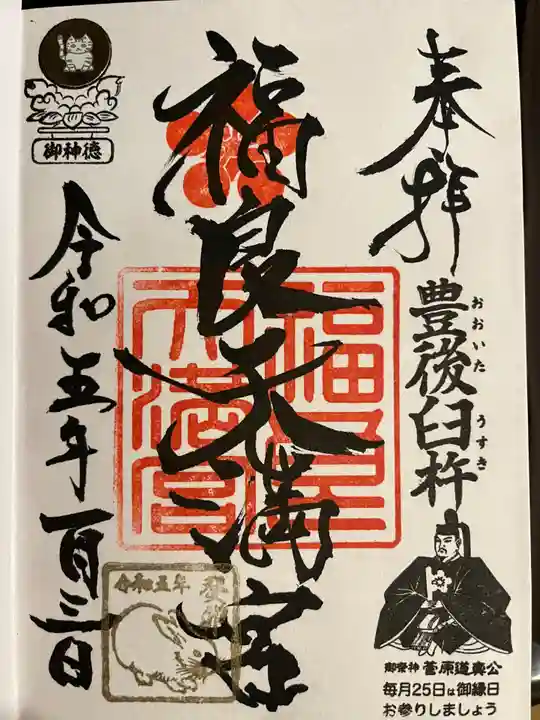 奉拝
豊後臼杵
おおいた
うすき
御祭神 菅原道真公
毎月25日は御縁日
お参りしましょう
福良天満宮
福良
天満宮
御神徳
令和五年一月三日
令和五年